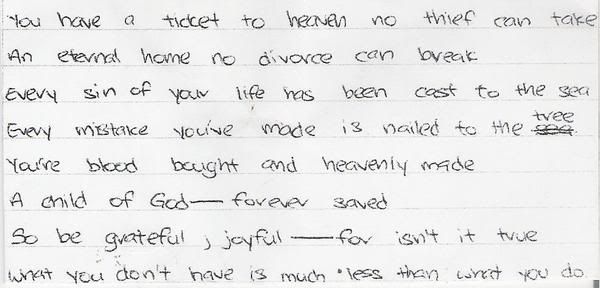 You have a ticket to heaven no thief can take
An eternal home no divorce can break
Every sin of your life has been cast to the sea
Every mistake you've made is nailed to the tree.
You're blood bought and heavenly made
A child of God — forever saved
So be grateful, joyful — for isn't it true
What you don't have is much less than what you do.